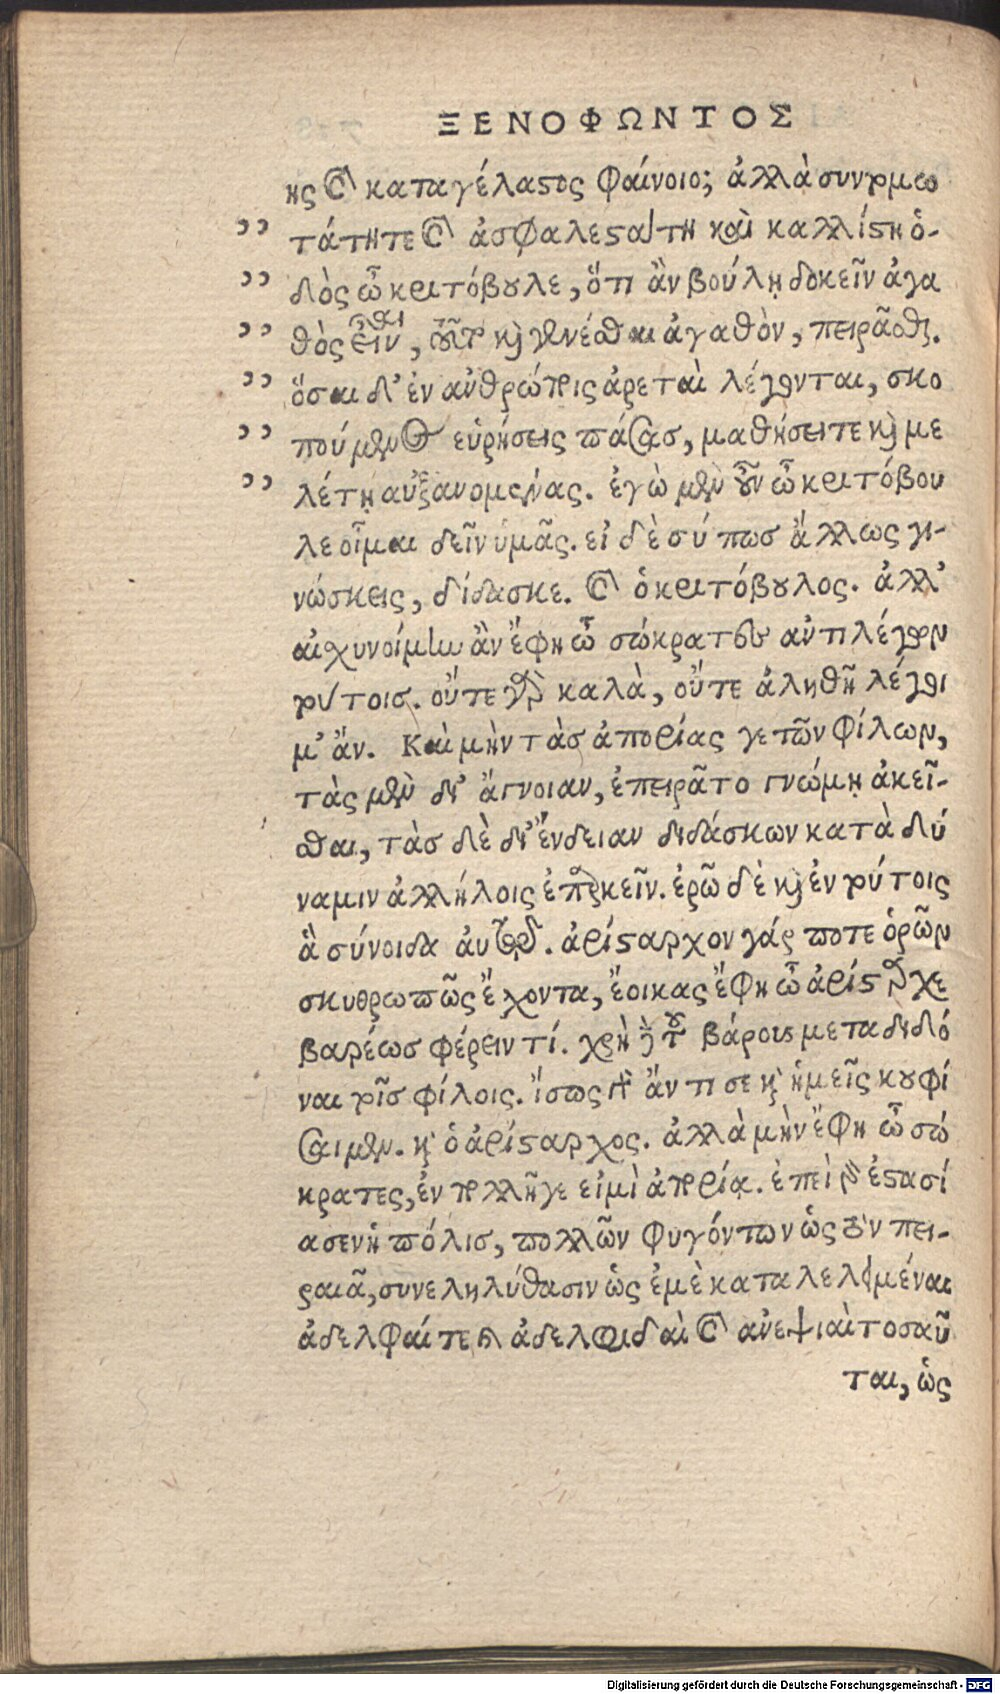 ΞΕΝΟΦΩΝΤΟΣ
ης καὶ καταγέλαστος φαίνοιο; ἀλλὰ συντομω
,, τάτη τε καὶ ἀσφαλεστάτη καὶ καλλίστη ὁ-
,, δὸς ὦ κριτόβουλε, ὅτι ἂν βούλῃ δοκεῖν ἀγα
,, θὸς εἶναι, τοῦτο καὶ γενέσθαι ἀγαθὸν, πειρᾶσθαι.
,, ὅσαι δ' ἐν ἀνθρώποις ἀρεταὶ λέγονται, σκο
,, πούμενος εὑρήσεις πάσας, μαθήσει τε καὶ με
,, λέτῃ αὐξανομένας. ἐγὼ μὲν οὖν ὦ κριτόβου
λε οἶμαι δεῖν ὑμᾶς. εἰ δὲ σύ πως ἄλλως γι-
νώσκεις, δίδασκε. καὶ ὁ κριτόβουλος. ἀλλ'
αἰσχυνοίμην ἂν ἔφη ὦ σώκρατες ἀντιλέγων
τούτοις. οὔτε γὰρ καλὰ, οὔτε ἀληθῆ λέγοι
μ' ἄν. Καὶ μὴν τὰς ἀπορίας γε τῶν φίλων,
τὰς μὲν δι' ἄγνοιαν, ἐπειρᾶτο γνώμῃ ἀκεῖ-
σθαι, τὰς δὲ δι' ἔνδειαν διδάσκων κατὰ δύ
ναμιν ἀλλήλοις ἐπαρκεῖν. ἐρῶ δὲ καὶ ἐν τούτοις
ἃ σύνοιδα αὐτῷ. ἀρίσταρχον γάρ ποτε ὁρῶν
σκυθρωπῶς ἔχοντα, ἔοικας ἔφη ὦ ἀρίσταρχε
βαρέως φέρειν τί. χρὴ δὲ τοῦ βάρους μεταδιδό
ναι τοῖς φίλοις. ἴσως γὰρ ἄν τι σε καὶ ἡμεῖς κουφί
σαιμεν. καὶ ὁ ἀρίσταρχος. ἀλλὰ μὴν ἔφη ὦ σώ
κρατες, ἐν πολλῇ γε εἰμὶ ἀπορίᾳ. ἐπεὶ γὰρ ἐστασί
ασεν ἡ πόλις, πολλῶν φυγόντων ὡς τὸν πει-
ραιᾶ, συνεληλύθασιν ὡς ἐμὲ καταλελειμμέναι
ἀδελφαί τε καὶ ἀδελφιδαὶ καὶ ἀνεψιαὶ τοσαῦ
ται, ὡς
Digitalisierung gefördert durch die Deutsche Forschungsgemeinschaft - DFG